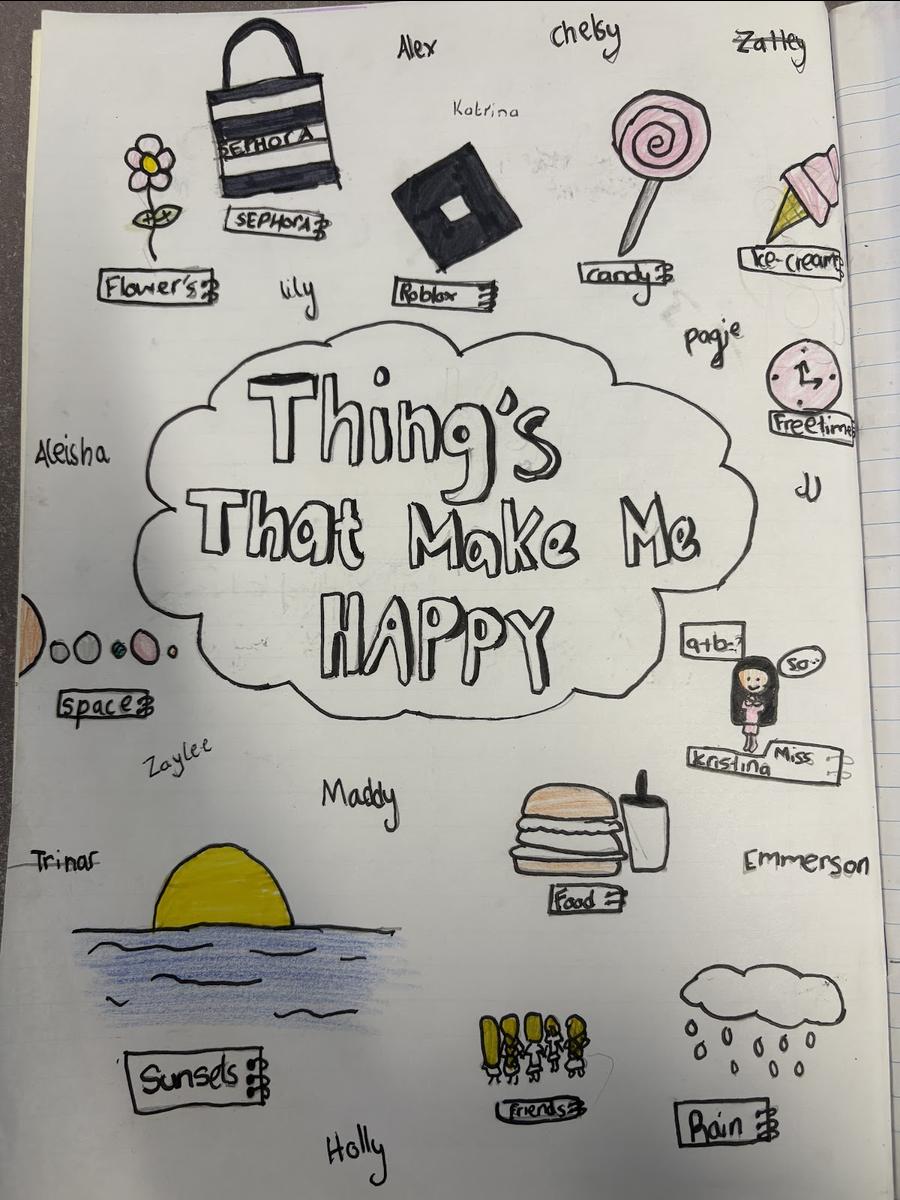 Alex
Chelsy
Zalley
Katrina
SEPHORA
SEPHORA
Flower's
lily
Roblox
candy
Ice-cream
pagie
Freetime
Thing's
That Make Me
HAPPY
Aleisha
a+b=?
so..
space
Miss
Kristina
Zaylee
Maddy
Trinar
Emmerson
Food
Sunsets
Friends
Rain
Holly